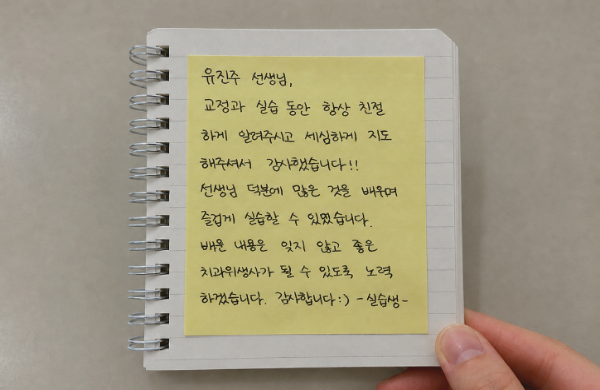 유진주 선생님,
교정과 실습 동안 항상 친절
하게 알려주시고 세심하게 지도
해주셔서 감사했습니다!!
선생님 덕분에 많은 것을 배우며
즐겁게 실습할 수 있었습니다.
배운 내용을 잊지 않고 좋은
치과위생사가 될 수 있도록 노력
하겠습니다. 감사합니다:) -실습생-